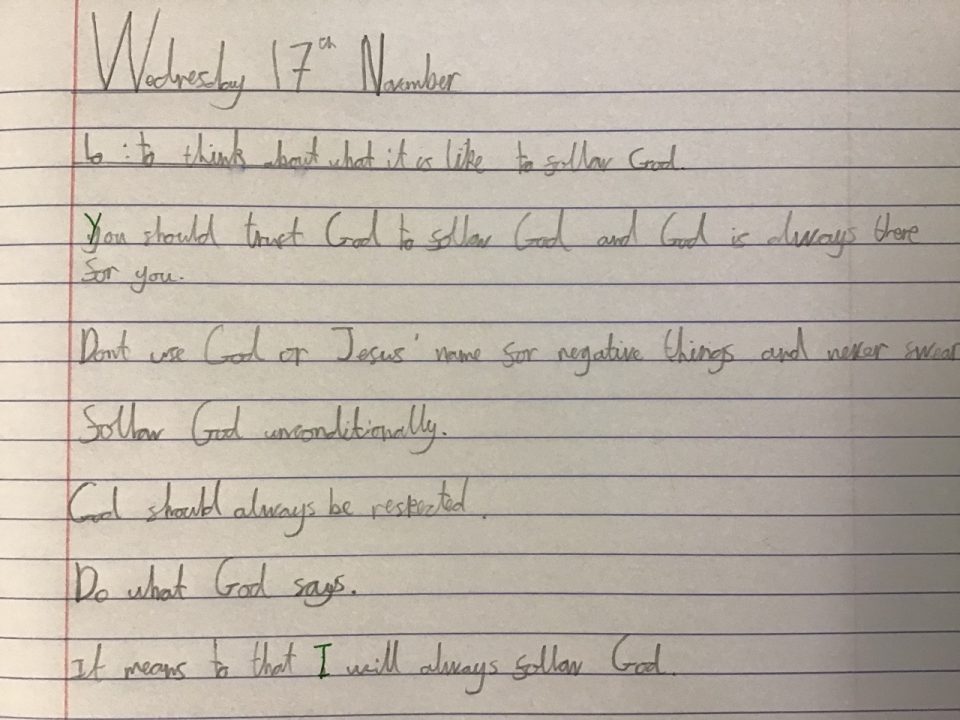 Wednesday 17th November
Lo : to think about what it is like to follow God.
You should trust God to follow God and God is always there
for you.
Dont use God or Jesus' name for negative things and never swear
follow God unconditionally.
God should always be respected.
Do what God says.
It means to that I will always follow God.